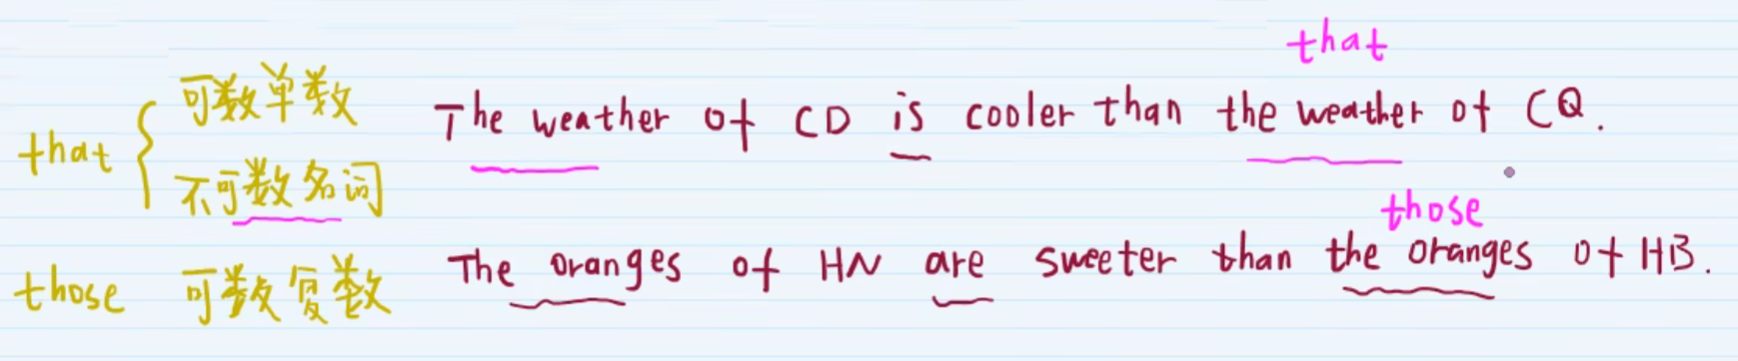 that
可数单数 The weather of CD is cooler than the weather of CQ.
that
不可数名词
those
those 可数复数 The oranges of HN are sweeter than the oranges of HB.